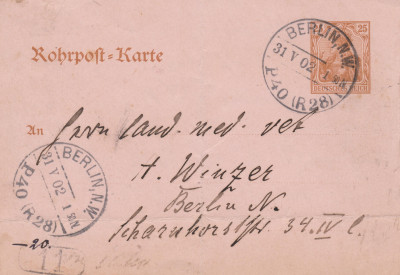 BERLIN, N.W.
31 V 02 1 N
P40 (R28)
25
DEUTSCHES REICH
Rohrpost-Karte
An
Herrn cand. med. vet
A. Winzer
Berlin N.
Scharnhorststr. 34. IV l.
BERLIN, N.W.
31 V 02 1 N
P40 (R28)
-20.